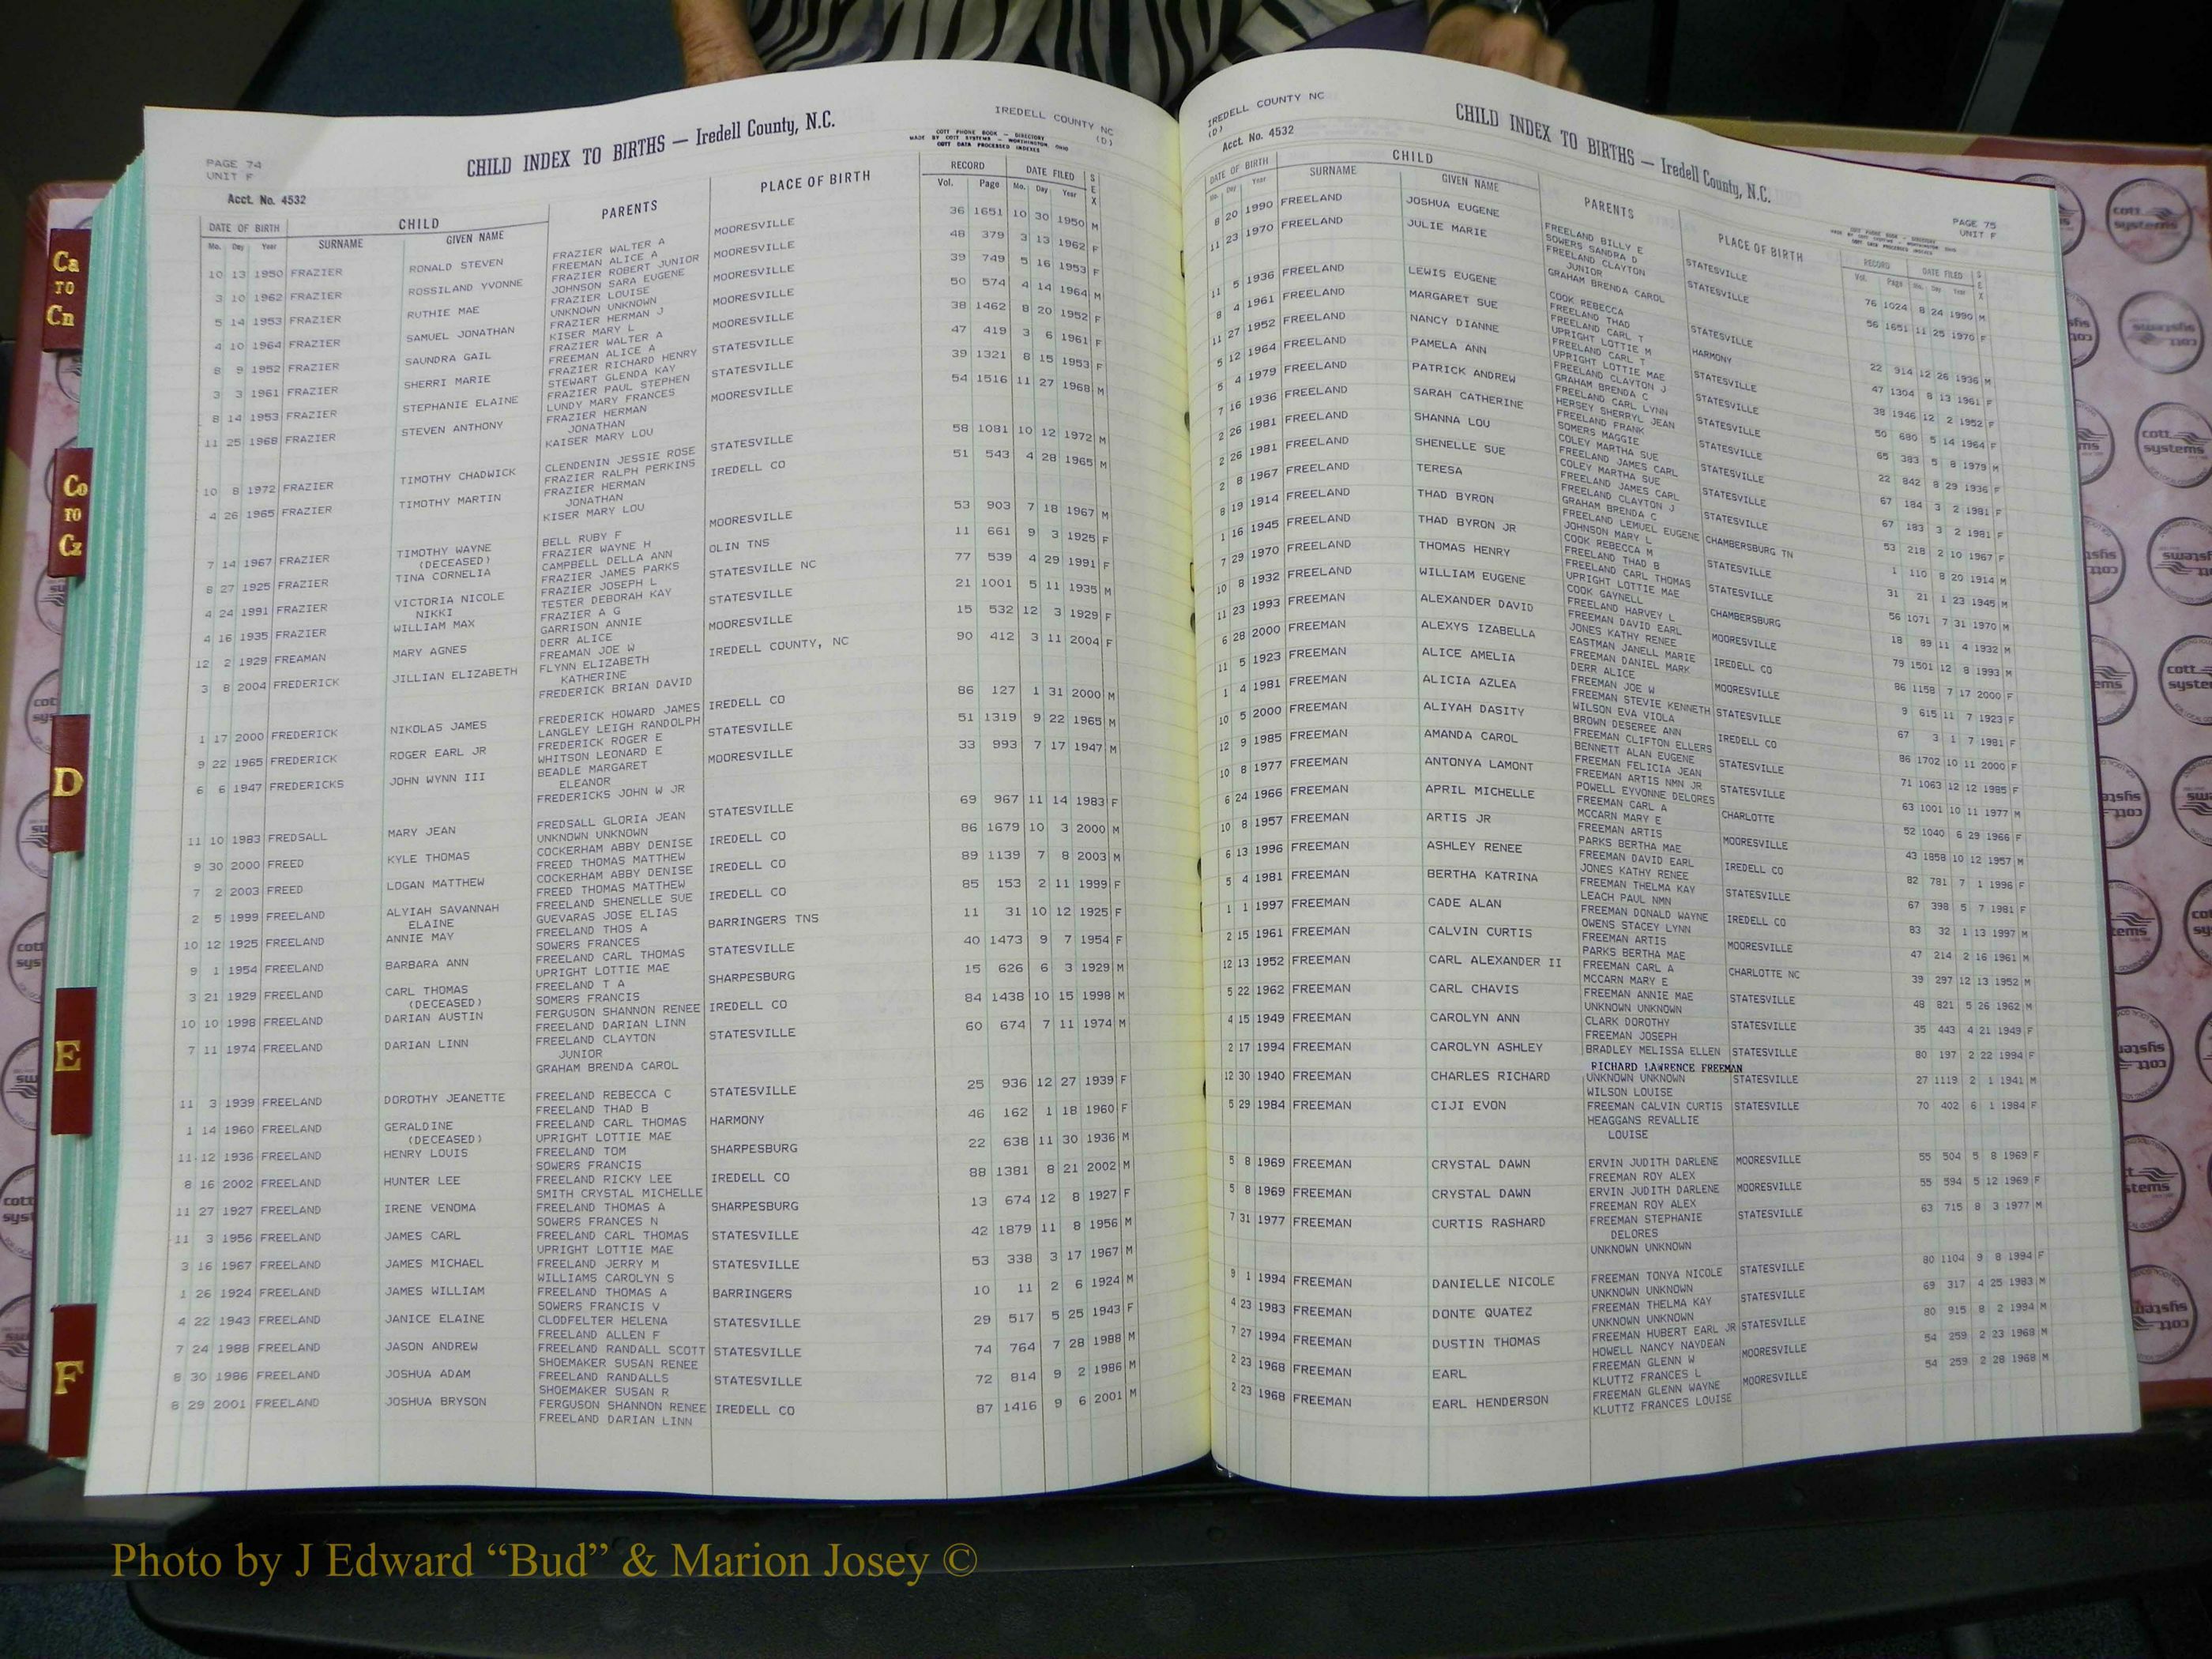 Ca
TO
Cn
Co
TO
Cz
D
E
F
PAGE 74
UNIT F
Acct. No. 4532
CHILD INDEX TO BIRTHS — Iredell County, N.C.
IREDELL COUNTY NC
(D)
COTT PHONE BOOK — DIRECTORY
MADE BY COTT SYSTEMS — WORTHINGTON, OHIO
COTT DATA PROCESSED INDEXES
DATE OF BIRTH CHILD PARENTS PLACE OF BIRTH RECORD DATE FILED SEX
Mo. Day Year SURNAME GIVEN NAME Vol. Page Mo. Day Year
10 13 1950 FRAZIER RONALD STEVEN FRAZIER WALTER A MOORESVILLE 36 1651 10 30 1950 M
FREEMAN ALICE A
3 10 1962 FRAZIER ROSSILAND YVONNE FRAZIER ROBERT JUNIOR MOORESVILLE 48 379 3 13 1962 F
JOHNSON SARA EUGENE
5 14 1953 FRAZIER RUTHIE MAE FRAZIER LOUISE MOORESVILLE 39 749 5 16 1953 F
UNKNOWN UNKNOWN
4 10 1964 FRAZIER SAMUEL JONATHAN FRAZIER HERMAN J MOORESVILLE 50 574 4 14 1964 M
KISER MARY L
8 9 1952 FRAZIER SAUNDRA GAIL FRAZIER WALTER A MOORESVILLE 38 1462 8 20 1952 F
FREEMAN ALICE A
3 3 1961 FRAZIER SHERRI MARIE FRAZIER RICHARD HENRY STATESVILLE 47 419 3 6 1961 F
STEWART GLENDA KAY
8 14 1953 FRAZIER STEPHANIE ELAINE FRAZIER PAUL STEPHEN STATESVILLE 39 1321 8 15 1953 F
LUNDY MARY FRANCES
11 25 1968 FRAZIER STEVEN ANTHONY FRAZIER HERMAN MOORESVILLE 54 1516 11 27 1968 M
JONATHAN
KAISER MARY LOU
10 8 1972 FRAZIER TIMOTHY CHADWICK CLENDENIN JESSIE ROSE STATESVILLE 58 1081 10 12 1972 M
FRAZIER RALPH PERKINS
4 26 1965 FRAZIER TIMOTHY MARTIN FRAZIER HERMAN IREDELL CO 51 543 4 28 1965 M
JONATHAN
KISER MARY LOU
7 14 1967 FRAZIER TIMOTHY WAYNE BELL RUBY F MOORESVILLE 53 903 7 18 1967 M
(DECEASED) FRAZIER WAYNE H
8 27 1925 FRAZIER TINA CORNELIA CAMPBELL DELLA ANN OLIN TNS 11 661 9 3 1925 F
FRAZIER JAMES PARKS
4 24 1991 FRAZIER VICTORIA NICOLE FRAZIER JOSEPH L STATESVILLE NC 77 539 4 29 1991 F
NIKKI TESTER DEBORAH KAY
4 16 1935 FRAZIER WILLIAM MAX FRAZIER A G STATESVILLE 21 1001 5 11 1935 M
GARRISON ANNIE
12 2 1929 FREAMAN MARY AGNES DERR ALICE MOORESVILLE 15 532 12 3 1929 F
FREAMAN JOE W
3 8 2004 FREDERICK JILLIAN ELIZABETH FLYNN ELIZABETH IREDELL COUNTY, NC 90 412 3 11 2004 F
KATHERINE
FREDERICK BRIAN DAVID
1 17 2000 FREDERICK NIKOLAS JAMES FREDERICK HOWARD JAMES IREDELL CO 86 127 1 31 2000 M
LANGLEY LEIGH RANDOLPH
9 22 1965 FREDERICK ROGER EARL JR FREDERICK ROGER E STATESVILLE 51 1319 9 22 1965 M
WHITSON LEONARD E
6 6 1947 FREDERICKS JOHN WYNN III BEADLE MARGARET MOORESVILLE 33 993 7 17 1947 M
ELEANOR
FREDERICKS JOHN W JR
11 10 1983 FREDSALL MARY JEAN FREDSALL GLORIA JEAN STATESVILLE 69 967 11 14 1983 F
UNKNOWN UNKNOWN
9 30 2000 FREED KYLE THOMAS COCKERHAM ABBY DENISE IREDELL CO 86 1679 10 3 2000 M
FREED THOMAS MATTHEW
7 2 2003 FREED LOGAN MATTHEW COCKERHAM ABBY DENISE IREDELL CO 89 1139 7 8 2003 M
FREED THOMAS MATTHEW
2 5 1999 FREELAND ALYIAH SAVANNAH FREELAND SHENELLE SUE IREDELL CO 85 153 2 11 1999 F
ELAINE GUEVARAS JOSE ELIAS
10 12 1925 FREELAND ANNIE MAY FREELAND THOS A BARRINGERS TNS 11 31 10 12 1925 F
SOWERS FRANCES
9 1 1954 FREELAND BARBARA ANN FREELAND CARL THOMAS STATESVILLE 40 1473 9 7 1954 F
UPRIGHT LOTTIE MAE
3 21 1929 FREELAND CARL THOMAS FREELAND T A SHARPESBURG 15 626 6 3 1929 M
(DECEASED) SOMERS FRANCIS
10 10 1998 FREELAND DARIAN AUSTIN FERGUSON SHANNON RENEE IREDELL CO 84 1438 10 15 1998 M
FREELAND DARIAN LINN
7 11 1974 FREELAND DARIAN LINN FREELAND CLAYTON STATESVILLE 60 674 7 11 1974 M
JUNIOR
GRAHAM BRENDA CAROL
11 3 1939 FREELAND DOROTHY JEANETTE FREELAND REBECCA C STATESVILLE 25 936 12 27 1939 F
FREELAND THAD B
1 14 1960 FREELAND GERALDINE FREELAND CARL THOMAS HARMONY 46 162 1 18 1960 F
(DECEASED) UPRIGHT LOTTIE MAE
11 12 1936 FREELAND HENRY LOUIS FREELAND TOM SHARPESBURG 22 638 11 30 1936 M
SOWERS FRANCIS
8 16 2002 FREELAND HUNTER LEE FREELAND RICKY LEE IREDELL CO 88 1381 8 21 2002 M
SMITH CRYSTAL MICHELLE
11 27 1927 FREELAND IRENE VENOMA FREELAND THOMAS A SHARPESBURG 13 674 12 8 1927 F
SOWERS FRANCES N
11 3 1956 FREELAND JAMES CARL FREELAND CARL THOMAS STATESVILLE 42 1879 11 8 1956 M
UPRIGHT LOTTIE MAE
3 16 1967 FREELAND JAMES MICHAEL FREELAND JERRY M STATESVILLE 53 338 3 17 1967 M
WILLIAMS CAROLYN S
1 26 1924 FREELAND JAMES WILLIAM FREELAND THOMAS A BARRINGERS 10 11 2 6 1924 M
SOWERS FRANCIS V
4 22 1943 FREELAND JANICE ELAINE CLODFELTER HELENA STATESVILLE 29 517 5 25 1943 F
FREELAND ALLEN F
7 24 1988 FREELAND JASON ANDREW FREELAND RANDALL SCOTT STATESVILLE 74 764 7 28 1988 M
SHOEMAKER SUSAN RENEE
8 30 1986 FREELAND JOSHUA ADAM FREELAND RANDALLS STATESVILLE 72 814 9 2 1986 M
SHOEMAKER SUSAN R
8 29 2001 FREELAND JOSHUA BRYSON FERGUSON SHANNON RENEE IREDELL CO 87 1416 9 6 2001 M
FREELAND DARIAN LINN
IREDELL COUNTY NC
(D)
Acct. No. 4532
CHILD INDEX TO BIRTHS — Iredell County, N.C.
PAGE 75
UNIT F
DATE OF BIRTH CHILD PARENTS PLACE OF BIRTH RECORD DATE FILED SEX
Mo. Day Year SURNAME GIVEN NAME Vol. Page Mo. Day Year
8 20 1990 FREELAND JOSHUA EUGENE FREELAND BILLY E STATESVILLE 76 1024 8 24 1990 M
SOWERS SANDRA D
11 23 1970 FREELAND JULIE MARIE FREELAND CLAYTON STATESVILLE 56 1651 11 25 1970 F
JUNIOR
GRAHAM BRENDA CAROL
11 5 1936 FREELAND LEWIS EUGENE COOK REBECCA STATESVILLE 22 914 12 26 1936 M
FREELAND THAD
8 4 1961 FREELAND MARGARET SUE FREELAND CARL T HARMONY 47 1304 8 13 1961 F
UPRIGHT LOTTIE M
11 27 1952 FREELAND NANCY DIANNE FREELAND CARL T STATESVILLE 38 1946 12 2 1952 F
UPRIGHT LOTTIE MAE
5 12 1964 FREELAND PAMELA ANN FREELAND CLAYTON J STATESVILLE 50 690 5 14 1964 F
GRAHAM BRENDA C
5 4 1979 FREELAND PATRICK ANDREW FREELAND CARL LYNN STATESVILLE 65 383 5 8 1979 M
HERSEY SHERRYL JEAN
7 16 1936 FREELAND SARAH CATHERINE FREELAND FRANK STATESVILLE 22 842 8 29 1936 F
SOMERS MAGGIE
2 26 1981 FREELAND SHANNA LOU COLEY MARTHA SUE STATESVILLE 67 184 3 2 1981 F
FREELAND JAMES CARL
2 26 1981 FREELAND SHENELLE SUE COLEY MARTHA SUE STATESVILLE 67 183 3 2 1981 F
FREELAND JAMES CARL
2 8 1967 FREELAND TERESA FREELAND CLAYTON J STATESVILLE 53 218 2 10 1967 F
GRAHAM BRENDA C
8 19 1914 FREELAND THAD BYRON FREELAND LEMUEL EUGENE CHAMBERSBURG TN 1 110 8 20 1914 M
JOHNSON MARY L
1 16 1945 FREELAND THAD BYRON JR COOK REBECCA M STATESVILLE 31 21 1 23 1945 M
FREELAND THAD B
7 29 1970 FREELAND THOMAS HENRY FREELAND CARL THOMAS STATESVILLE 56 1071 7 31 1970 M
UPRIGHT LOTTIE MAE
10 8 1932 FREELAND WILLIAM EUGENE COOK GAYNELL CHAMBERSBURG 18 89 11 4 1932 M
FREELAND HARVEY L
11 23 1993 FREEMAN ALEXANDER DAVID FREEMAN DAVID EARL MOORESVILLE 79 1501 12 8 1993 M
JONES KATHY RENEE
6 28 2000 FREEMAN ALEXYS IZABELLA EASTMAN JANELL MARIE IREDELL CO 86 1158 7 17 2000 F
FREEMAN DANIEL MARK
11 5 1923 FREEMAN ALICE AMELIA DERR ALICE MOORESVILLE 9 615 11 7 1923 F
FREEMAN JOE W
1 4 1981 FREEMAN ALICIA AZLEA FREEMAN STEVIE KENNETH STATESVILLE 67 3 1 7 1981 F
WILSON EVA VIOLA
10 5 2000 FREEMAN ALIYAH DASITY BROWN DESEREE ANN IREDELL CO 86 1702 10 11 2000 F
FREEMAN CLIFTON ELLERS
12 9 1985 FREEMAN AMANDA CAROL BENNETT ALAN EUGENE STATESVILLE 71 1063 12 12 1985 F
FREEMAN FELICIA JEAN
10 8 1977 FREEMAN ANTONYA LAMONT FREEMAN ARTIS NMN JR STATESVILLE 63 1001 10 11 1977 M
POWELL EYVONNE DELORES
6 24 1966 FREEMAN APRIL MICHELLE FREEMAN CARL A CHARLOTTE 52 1040 6 29 1966 F
MCCARN MARY E
10 8 1957 FREEMAN ARTIS JR FREEMAN ARTIS MOORESVILLE 43 1858 10 12 1957 M
PARKS BERTHA MAE
6 13 1996 FREEMAN ASHLEY RENEE FREEMAN DAVID EARL IREDELL CO 82 781 7 1 1996 F
JONES KATHY RENEE
5 4 1981 FREEMAN BERTHA KATRINA FREEMAN THELMA KAY STATESVILLE 67 398 5 7 1981 F
LEACH PAUL NMN
1 1 1997 FREEMAN CADE ALAN FREEMAN DONALD WAYNE IREDELL CO 83 32 1 13 1997 M
OWENS STACEY LYNN
2 15 1961 FREEMAN CALVIN CURTIS FREEMAN ARTIS MOORESVILLE 47 214 2 16 1961 M
PARKS BERTHA MAE
12 13 1952 FREEMAN CARL ALEXANDER II FREEMAN CARL A CHARLOTTE NC 39 297 12 13 1952 M
MCCARN MARY E
5 22 1962 FREEMAN CARL CHAVIS FREEMAN ANNIE MAE STATESVILLE 48 821 5 26 1962 M
UNKNOWN UNKNOWN
4 15 1949 FREEMAN CAROLYN ANN CLARK DOROTHY STATESVILLE 35 443 4 21 1949 F
FREEMAN JOSEPH
2 17 1994 FREEMAN CAROLYN ASHLEY BRADLEY MELISSA ELLEN STATESVILLE 80 197 2 22 1994 F
RICHARD LAWRENCE FREEMAN
12 30 1940 FREEMAN CHARLES RICHARD UNKNOWN UNKNOWN STATESVILLE 27 1119 2 1 1941 M
WILSON LOUISE
5 29 1984 FREEMAN CIJI EVON FREEMAN CALVIN CURTIS STATESVILLE 70 402 6 1 1984 F
HEAGGANS REVALLIE
LOUISE
5 8 1969 FREEMAN CRYSTAL DAWN ERVIN JUDITH DARLENE MOORESVILLE 55 504 5 8 1969 F
FREEMAN ROY ALEX
5 8 1969 FREEMAN CRYSTAL DAWN ERVIN JUDITH DARLENE MOORESVILLE 55 594 5 12 1969 F
FREEMAN ROY ALEX
7 31 1977 FREEMAN CURTIS RASHARD FREEMAN STEPHANIE STATESVILLE 63 715 8 3 1977 M
DELORES
UNKNOWN UNKNOWN
9 1 1994 FREEMAN DANIELLE NICOLE FREEMAN TONYA NICOLE STATESVILLE 80 1104 9 8 1994 F
UNKNOWN UNKNOWN
4 23 1983 FREEMAN DONTE QUATEZ FREEMAN THELMA KAY STATESVILLE 69 317 4 25 1983 M
UNKNOWN UNKNOWN
7 27 1994 FREEMAN DUSTIN THOMAS FREEMAN HUBERT EARL JR STATESVILLE 80 915 8 2 1994 M
HOWELL NANCY NAYDEAN
2 23 1968 FREEMAN EARL FREEMAN GLENN W MOORESVILLE 54 259 2 23 1968 M
KLUTTZ FRANCES L
2 23 1968 FREEMAN EARL HENDERSON FREEMAN GLENN WAYNE MOORESVILLE 54 259 2 28 1968 M
KLUTTZ FRANCES LOUISE
cott
systems
Photo by J Edward “Bud” & Marion Josey ©